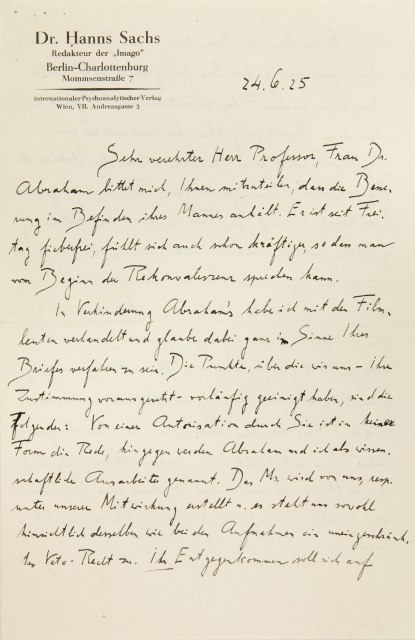 Dr. Hanns Sachs
Redakteur der „Imago“
Berlin-Charlottenburg
Mommsenstraße 7
Internationaler Psychoanalytischer Verlag
Wien, VII. Andreasgasse 3
24.6.25
Sehr verehrter Herr Professor, Frau Dr.
Abraham bittet mich, Ihnen mitzuteilen, dass die Besse-
rung im Befinden ihres Mannes anhält. Er ist seit Frei-
tag fieberfrei, fühlt sich auch schon kräftiger, so dass man
vom Beginn der Rekonvaleszenz sprechen kann.
In Verhinderung Abraham's habe ich mit den Film-
leuten verhandelt und glaube dabei ganz im Sinne Ihres
Briefes verfahren zu sein. Die Punkte, über die wir uns – Ihre
Zustimmung vorausgesetzt – vorläufig geeinigt haben, sind die
folgenden: Von einer Autorisation durch Sie ist in keiner
Form die Rede, hingegen werden Abraham und ich als wissen-
schaftliche Ausarbeiter genannt. Das Ms. wird von uns, resp.
unter unserer Mitwirkung erstellt u. es steht uns sowohl
hinsichtlich desselben wie bei den Aufnahmen ein uneingeschränk-
tes Veto-Recht zu. Ihr Entgegenkommen soll sich auf